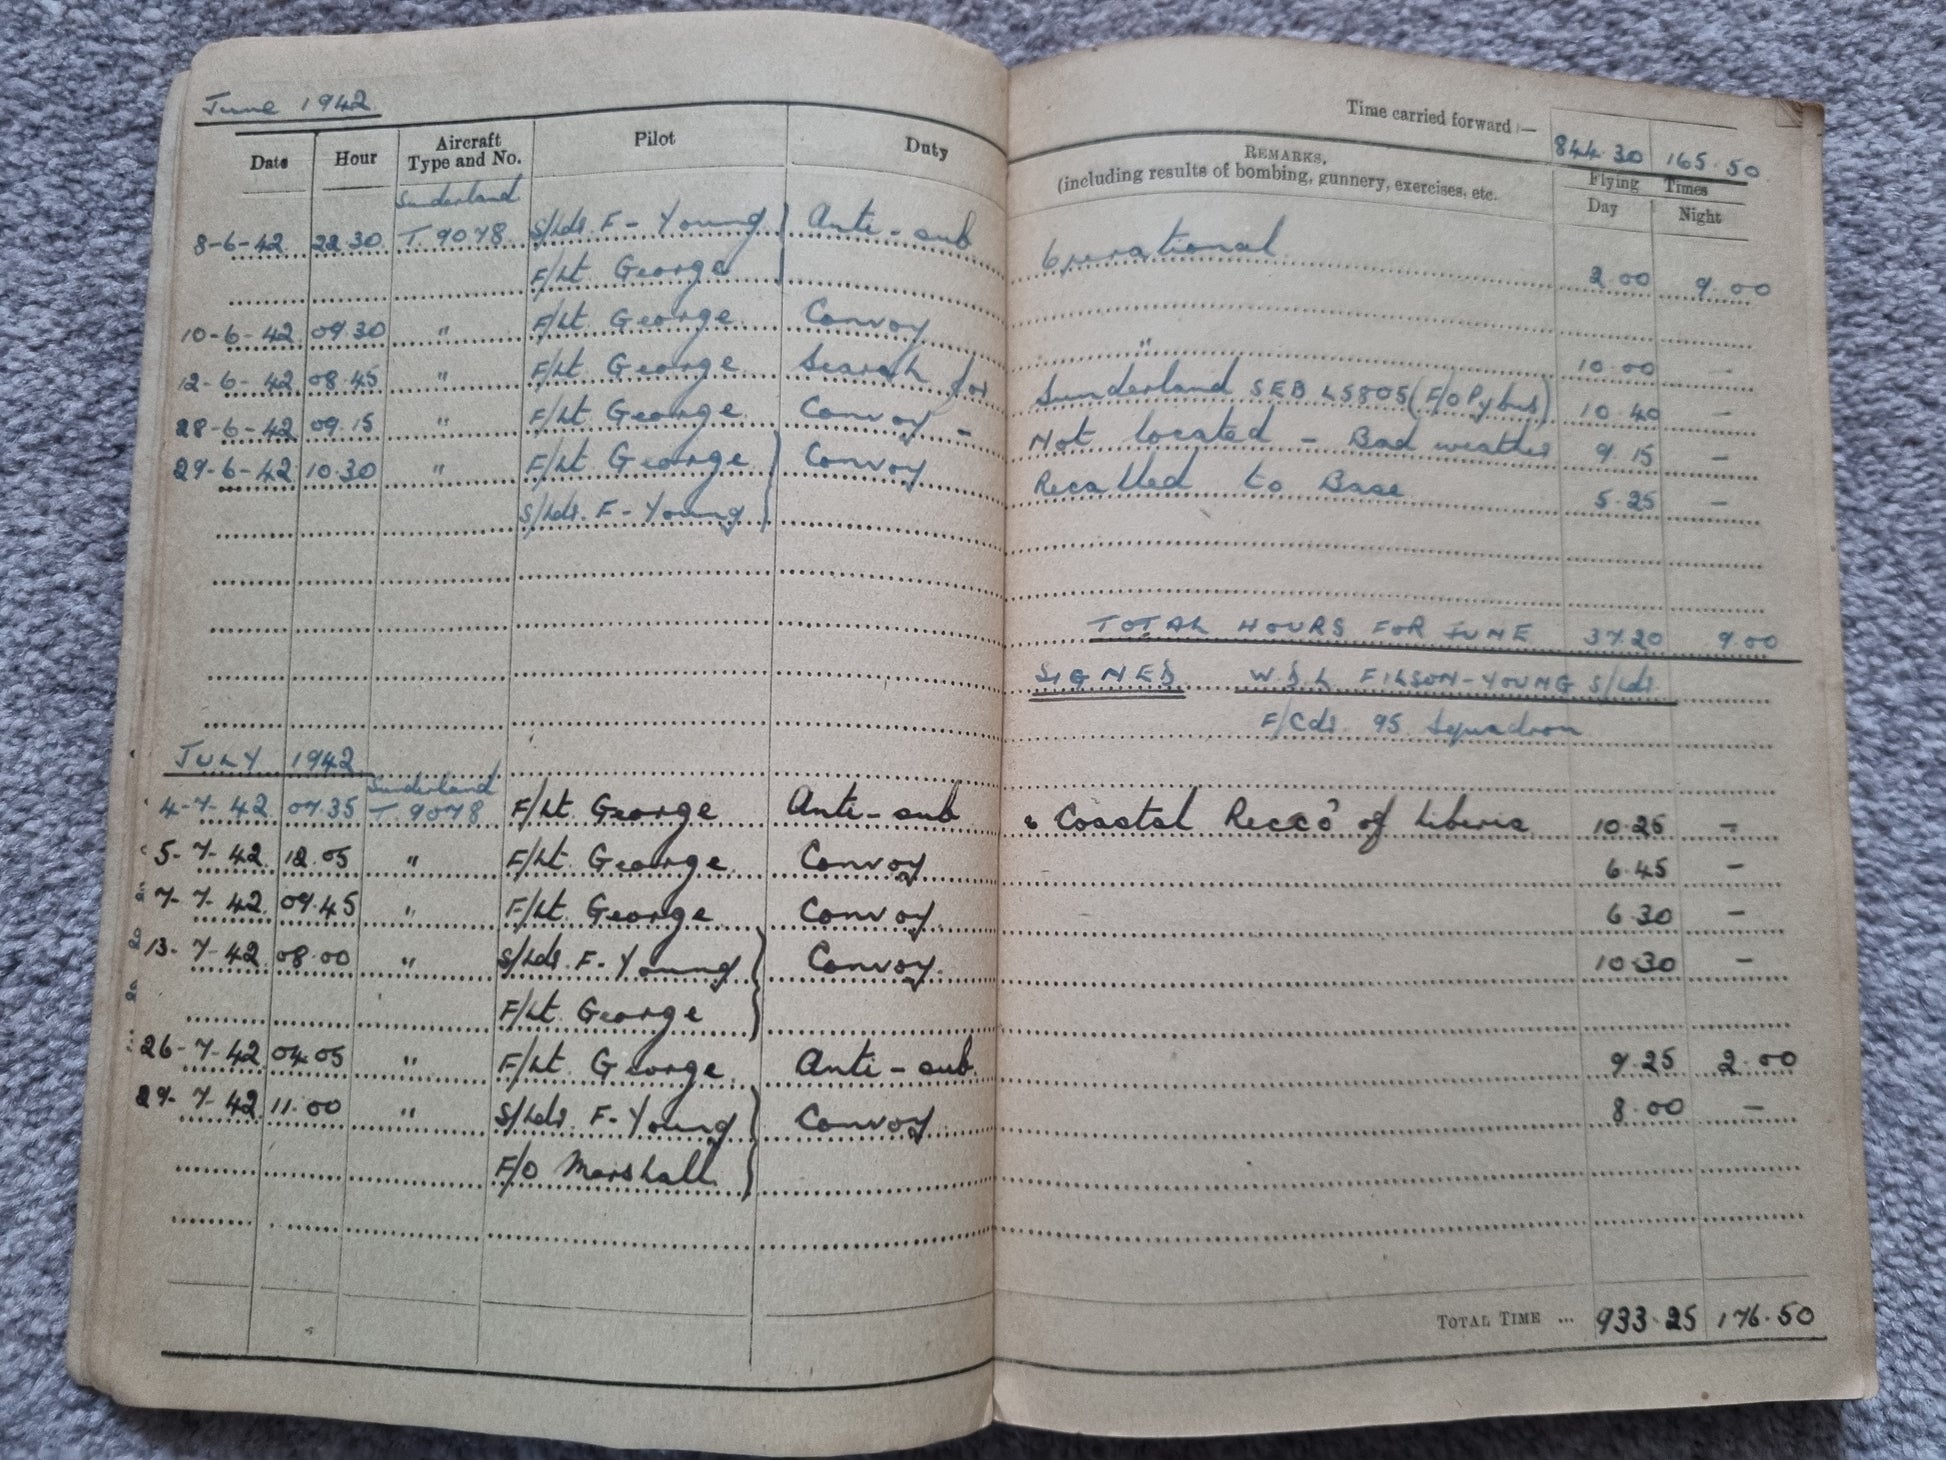 June 1942
Date Hour Aircraft Type and No. Pilot Duty
Time carried forward :— 844.30 165.50
REMARKS, (including results of bombing, gunnery, exercises, etc. Flying Times Day Night
Sunderland
8-6-42 22.30 T.9078 S/Ldr. F-Young } Anti-sub Operational 2.00 9.00
F/Lt. George
10-6-42 09.30 " F/Lt. George Convoy " 10.00 –
12-6-42 08.45 " F/Lt. George Search for Sunderland SEB L5805 (F/O Pybus) 10.40 –
28-6-42 09.15 " F/Lt. George Convoy – Not located – Bad weather 9.15 –
29-6-42 10.30 " F/Lt. George } Convoy Recalled to Base 5.25 –
S/Ldr. F-Young
TOTAL HOURS FOR JUNE 37.20 9.00
SIGNED W.D.L FILSON-YOUNG S/Ldr.
F/Cdr. 95 Squadron
JULY 1942
Sunderland
4-7-42 07.35 T.9078 F/Lt. George Anti-sub & Coastal Recco' of Liberia 10.25 –
5-7-42 12.05 " F/Lt. George Convoy 6.45 –
7-7-42 09.45 " F/Lt. George Convoy. 6.30 –
13-7-42 08.00 " S/Ldr. F-Young } Convoy. 10.30 –
F/Lt. George
26-7-42 04.05 " F/Lt. George Anti-sub. 9.25 2.00
29-7-42 11.00 " S/Ldr. F-Young } Convoy 8.00 –
F/O Marshall
TOTAL TIME ... 933.25 176.50